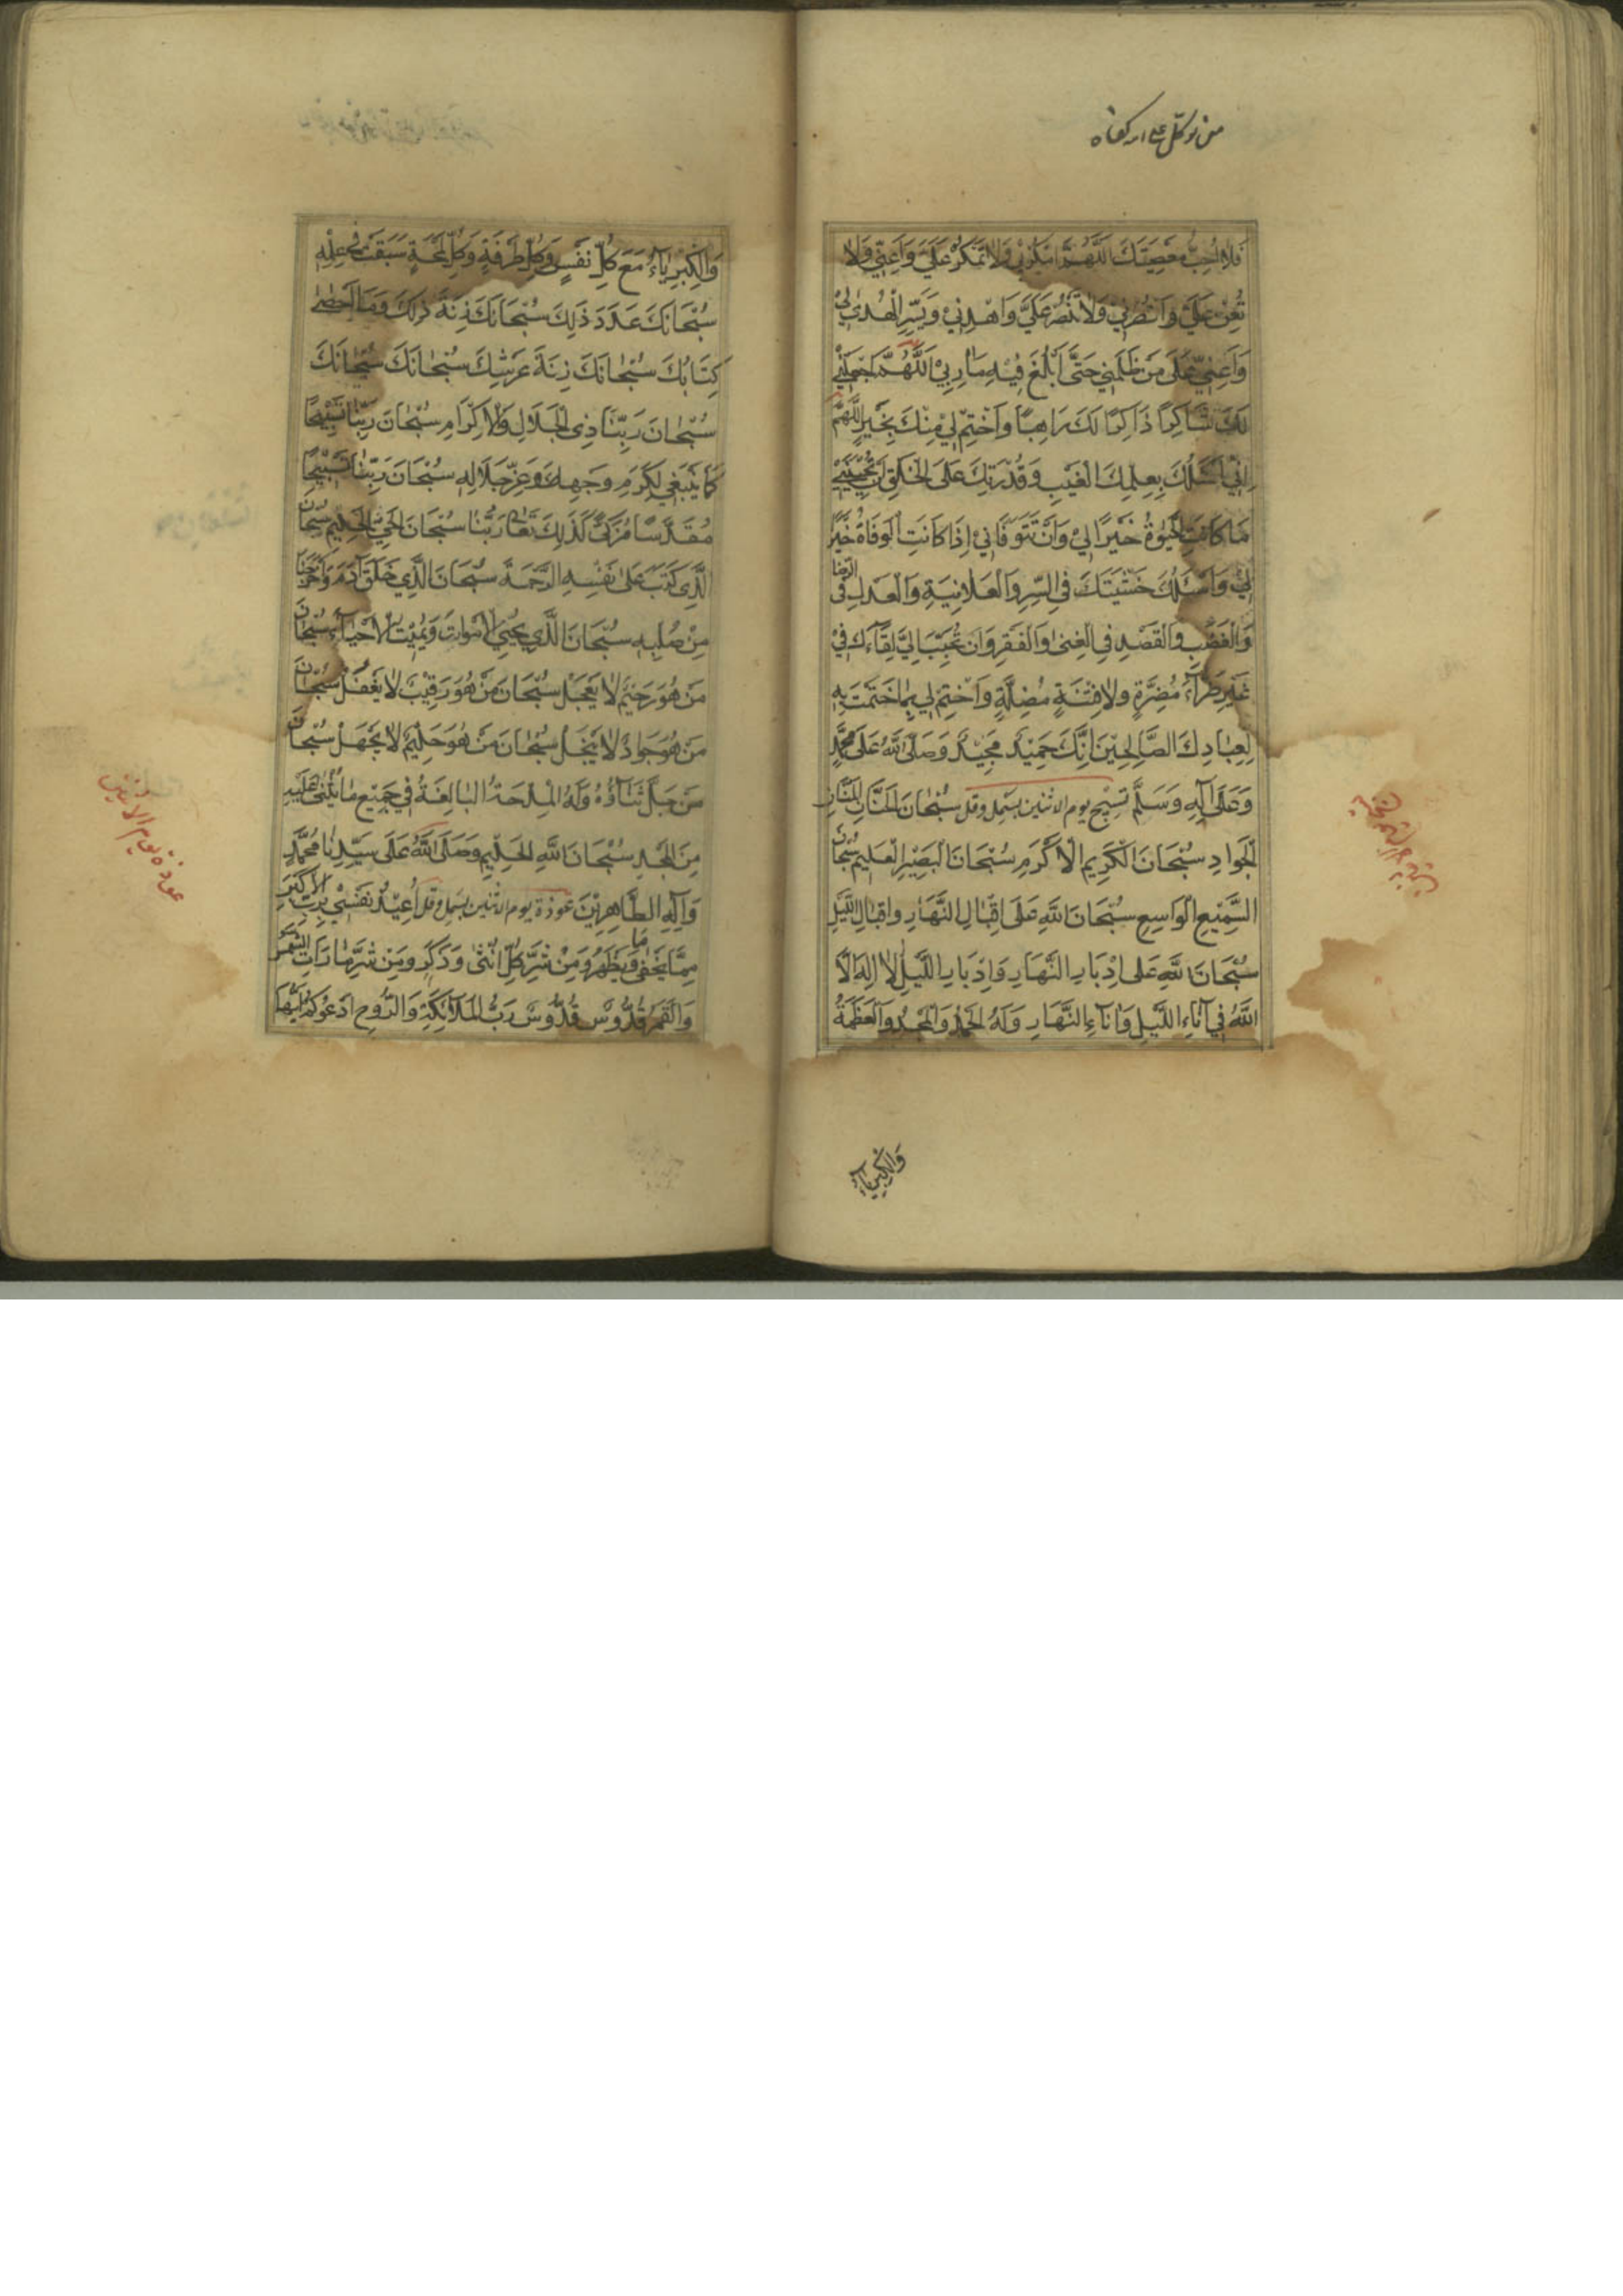 من توكل على الله كفاه
فَلا اُحِبُّ مَعْصِيَتَكَ اَللّٰهُمَّ امْكُرْ لي وَلا تَمْكُرْ عَلَيَّ وَاَعِنّي وَلا
تُعِنْ عَلَيَّ وَانْصُرْني وَلا تَنْصُرْ عَلَيَّ وَاهْدِني وَيَسِّرِ الْهُدىٰ لي
وَاَعِنّي عَلىٰ مَنْ ظَلَمَني حَتّىٰ اَبْلُغَ فيهِ مَارِبي اَللّٰهُمَّ اجْعَلْني
لَكَ شَاكِراً ذَاكِراً لَكَ رَاهِباً وَاخْتِمْ لي مِنْكَ بِخَيْرٍ اَللّٰهُمَّ
اِنّي اَسْئَلُكَ بِعِلْمِكَ الْغَيْبِ وَقُدْرَتِكَ عَلَى الْخَلْقِ اَنْ تُحْيِيَني
مَا كَانَتِ الْحَيٰوةُ خَيْراً لي وَاَنْ تَتَوَفّاني اِذَا كَانَتِ الْوَفَاةُ خَيْراً
لي وَاَسْئَلُكَ خَشْيَتَكَ فِي السِّرِّ وَالْعَلانِيَةِ وَالْعَدْلَ فِي الرِّضَا
وَالْغَضَبِ وَالْقَصْدَ فِي الْغِنىٰ وَالْفَقْرِ وَاَنْ تُحَبِّبَ اِلَيَّ لِقَاءَكَ في
غَيْرِ ضَرّآءَ مُضِرَّةٍ وَلا فِتْنَةٍ مُضِلَّةٍ وَاخْتِمْ لي بِمَا خَتَمْتَ بِهِ
لِعِبَادِكَ الصَّالِحينَ اِنَّكَ حَميدٌ مَجيدٌ وَصَلَّى اللّٰهُ عَلىٰ مُحَمَّدٍ
وَعَلىٰ آلِهِ وَسَلَّمَ تسبيح يوم الاثنين بسمل وقل سُبْحَانَ الْحَنَّانِ الْمَنَّانِ
الْجَوادِ سُبْحَانَ الْكَريمِ الْاَكْرَمِ سُبْحَانَ الْبَصيرِ الْعَليمِ سُبْحَانَ
السَّميعِ الْوَاسِعِ سُبْحَانَ اللّٰهِ عَلىٰ اِقْبَالِ النَّهَارِ وَاِقْبَالِ اللَّيْلِ
سُبْحَانَ اللّٰهِ عَلىٰ اِدْبَارِ النَّهَارِ وَاِدْبَارِ اللَّيْلِ لا اِلٰهَ اِلَّا
اللّٰهُ في آنَاءِ اللَّيْلِ وَآنَاءِ النَّهَارِ وَلَهُ الْحَمْدُ وَالْمَجْدُ وَالْعَظَمَةُ
وَالْكِبْرِيَاءُ
وَالْكِبْرِيَآءُ مَعَ كُلِّ نَفَسٍ وَكُلِّ طَرْفَةٍ وَكُلِّ لَمْحَةٍ سَبَقَتْ في عِلْمِهِ
سُبْحَانَكَ عَدَدَ ذٰلِكَ سُبْحَانَكَ زِنَةَ ذٰلِكَ وَمَا اَحْصىٰ
كِتَابُكَ سُبْحَانَكَ زِنَةَ عَرْشِكَ سُبْحَانَكَ سُبْحَانَكَ
سُبْحَانَ رَبِّنَا ذِي الْجَلالِ وَالْاِكْرَامِ سُبْحَانَ رَبِّنَا تَسْبيحاً
كَمَا يَنْبَغي لِكَرَمِ وَجْهِهِ وَعِزِّ جَلالِهِ سُبْحَانَ رَبِّنَا تَسْبيحاً
مُقَدَّساً مُزَكّىً كَذٰلِكَ تَعَالىٰ رَبُّنَا سُبْحَانَ الْحَيِّ الْحَليمِ سُبْحَانَ
الَّذي كَتَبَ عَلىٰ نَفْسِهِ الرَّحْمَةَ سُبْحَانَ الَّذي خَلَقَ آدَمَ وَاَخْرَجَنَا
مِنْ صُلْبِهِ سُبْحَانَ الَّذي يُحْيِي الْاَمْوَاتَ وَيُميتُ الْاَحْيَاءَ سُبْحَانَ
مَنْ هُوَ رَحيمٌ لا يَعْجَلُ سُبْحَانَ مَنْ هُوَ رَقيبٌ لا يَغْفُلُ سُبْحَانَ
مَنْ هُوَ جَوادٌ لا يَبْخَلُ سُبْحَانَ مَنْ هُوَ حَليمٌ لا يَجْهَلُ سُبْحَانَ
مَنْ جَلَّ ثَنَاؤُهُ وَلَهُ الْمِدْحَةُ الْبَالِغَةُ في جَميعِ مَا يُثْنىٰ عَلَيْهِ
مِنَ الْمَجْدِ سُبْحَانَ اللّٰهِ الْحَليمِ وَصَلَّى اللّٰهُ عَلىٰ سَيِّدِنَا مُحَمَّدٍ
وَآلِهِ الطَّاهِرينَ عوذة يوم الاثنين بسمل وقل اُعيذُ نَفْسي بِرَبِّيَ الْاَكْبَرِ
مِمَّا يَخْفىٰ وَمَا يَظْهَرُ وَمِنْ شَرِّ كُلِّ اُنْثىٰ وَذَكَرٍ وَمِنْ شَرِّ مَا رَاَتِ الشَّمْسُ
وَالْقَمَرُ قُدُّوسٌ قُدُّوسٌ رَبُّ الْمَلآئِكَةِ وَالرُّوحِ اَدْعُوكُمْ اَيُّهَا
عوذة يوم الاثنين